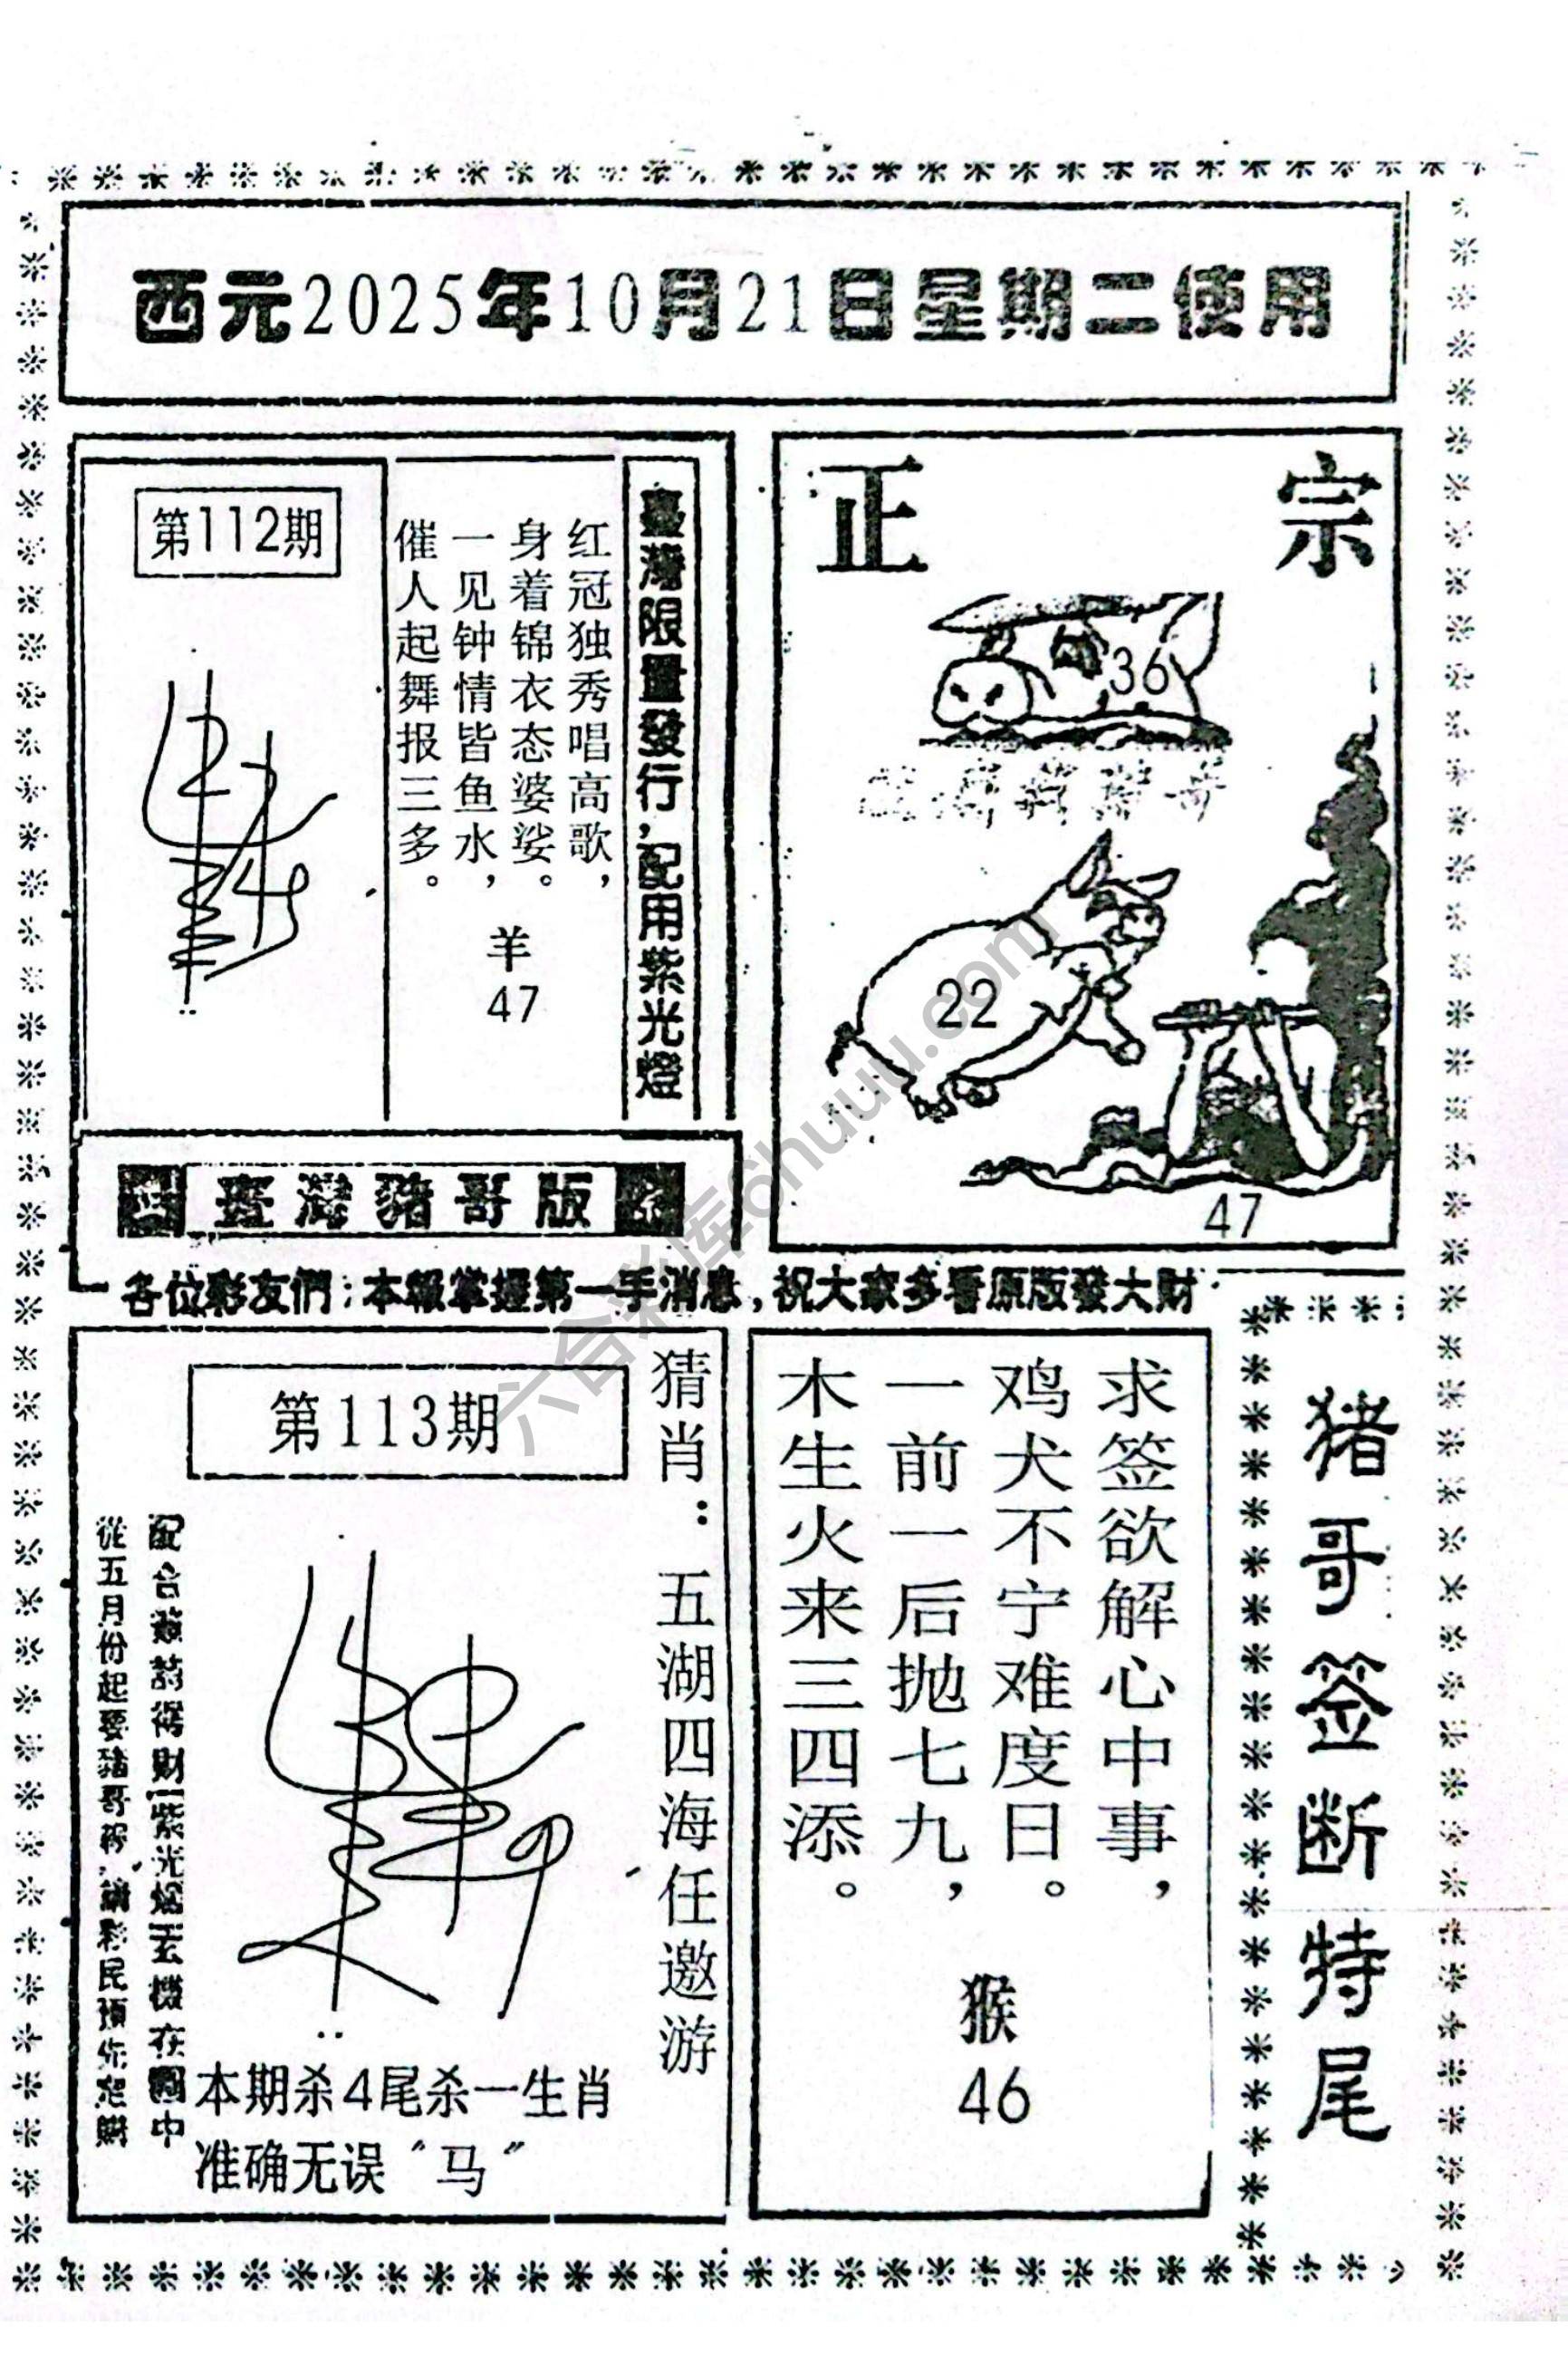 西元2025年10月21日星期二使用
第112期
臺灣限量發行，配用紫光燈
红冠独秀唱高歌，
身着锦衣态婆娑。
一见钟情皆鱼水，
催人起舞报三多。
羊
47
正宗
36
22
47
臺灣豬哥版
各位彩友們：本報掌握第一手消息，祝大家多看原版發大財
第113期
猜肖：五湖四海任邀游
本期杀4尾杀一生肖
准确无误"马"
求签欲解心中事，
鸡犬不宁难度日。
一前一后抛七九，
木生火来三四添。
猴
46
猪哥签断特尾
六合彩库6huuu.com